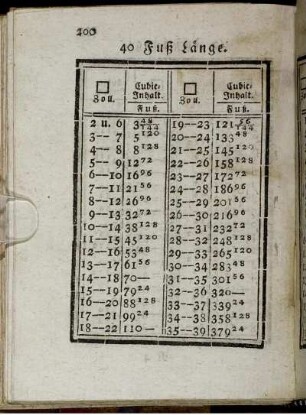 200
40 Fuß Länge.
□ Zoll. Cubic-Inhalt. Fuß. □ Zoll. Cubic-Inhalt. Fuß.
2 u. 6 3 48/144 19—23 121 56/144
3— 7 5 120 20—24 133 48
4— 8 8 128 21—25 145 120
5— 9 12 72 22—26 158 128
6—10 16 96 23—27 172 72
7—11 21 56 24—28 186 96
8—12 26 96 25—29 201 56
9—13 32 72 26—30 216 96
10—14 38 128 27—31 232 72
11—15 45 120 28—32 248 128
12—16 53 48 29—33 265 120
13—17 61 56 30—34 283 48
14—18 70— 31—35 301 56
15—19 79 24 32—36 320—
16—20 88 128 33—37 339 24
17—21 99 24 34—38 358 128
18—22 110— 35—39 379 24